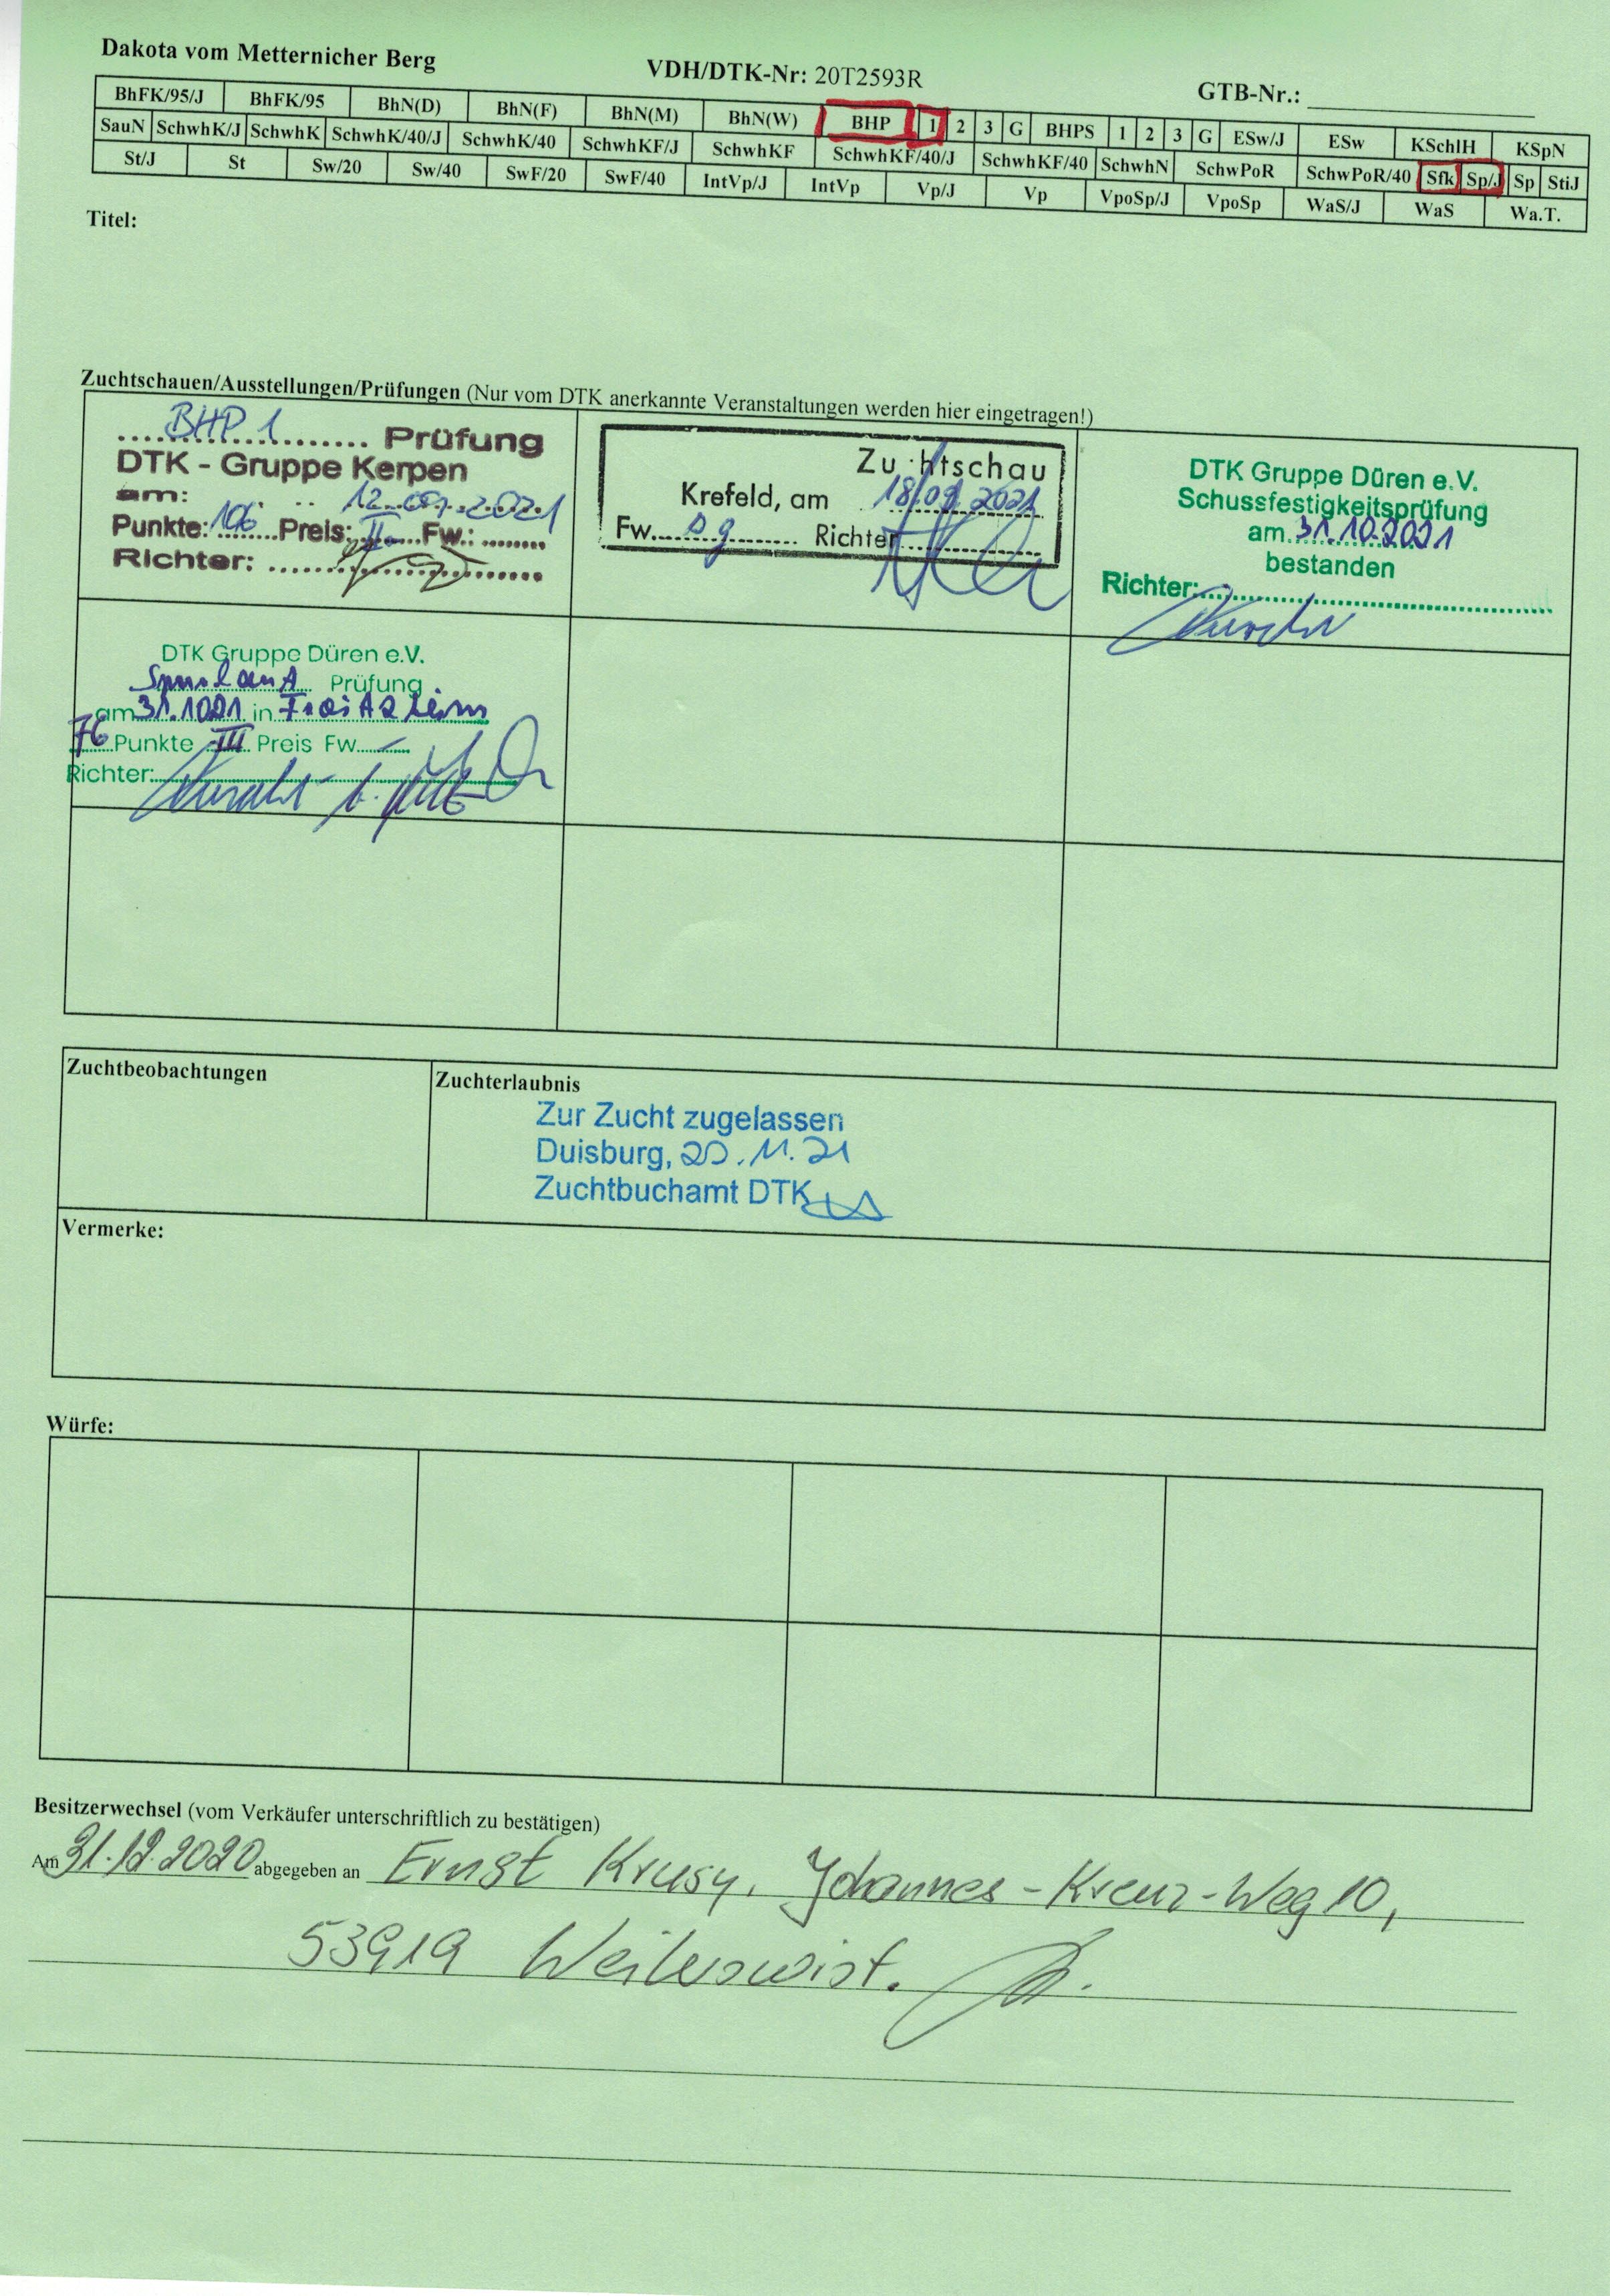 Dakota vom Metternicher Berg
VDH/DTK-Nr: 20T2593R
GTB-Nr.:
BhFK/95/J BhFK/95 BhN(D) BhN(F) BhN(M) BhN(W) BHP 1 2 3 G BHPS 1 2 3 G ESw/J ESw KSchlH KSpN
SauN SchwhK/J SchwhK SchwhK/40/J SchwhK/40 SchwhKF/J SchwhKF SchwhKF/40/J SchwhKF/40 SchwhN SchwPoR SchwPoR/40 Sfk Sp/J Sp StiJ
St/J St Sw/20 Sw/40 SwF/20 SwF/40 IntVp/J IntVp Vp/J Vp VpoSp/J VpoSp WaS/J WaS Wa.T.
Titel:
Zuchtschauen/Ausstellungen/Prüfungen (Nur vom DTK anerkannte Veranstaltungen werden hier eingetragen!)
BHP 1 Prüfung
DTK - Gruppe Kerpen
am: 12.09.2021
Punkte: 106 Preis: II Fw.:
Richter:
Zu htschau
Krefeld, am 18.09.2021
Fw. sg Richter
DTK Gruppe Düren e.V.
Schussfestigkeitsprüfung
am 31.10.2021
bestanden
Richter:
DTK Gruppe Düren e.V.
Spurlaut Prüfung
am 31.10.21 in
76 Punkte III Preis Fw.
Richter:
Zuchtbeobachtungen
Zuchterlaubnis
Zur Zucht zugelassen
Duisburg, 20.11.21
Zuchtbuchamt DTK
Vermerke:
Würfe:
Besitzerwechsel (vom Verkäufer unterschriftlich zu bestätigen)
Am 31.12.2020 abgegeben an Ernst Krusy, Johannes-Kreuz-Weg 10,
53919 Weilerswist.